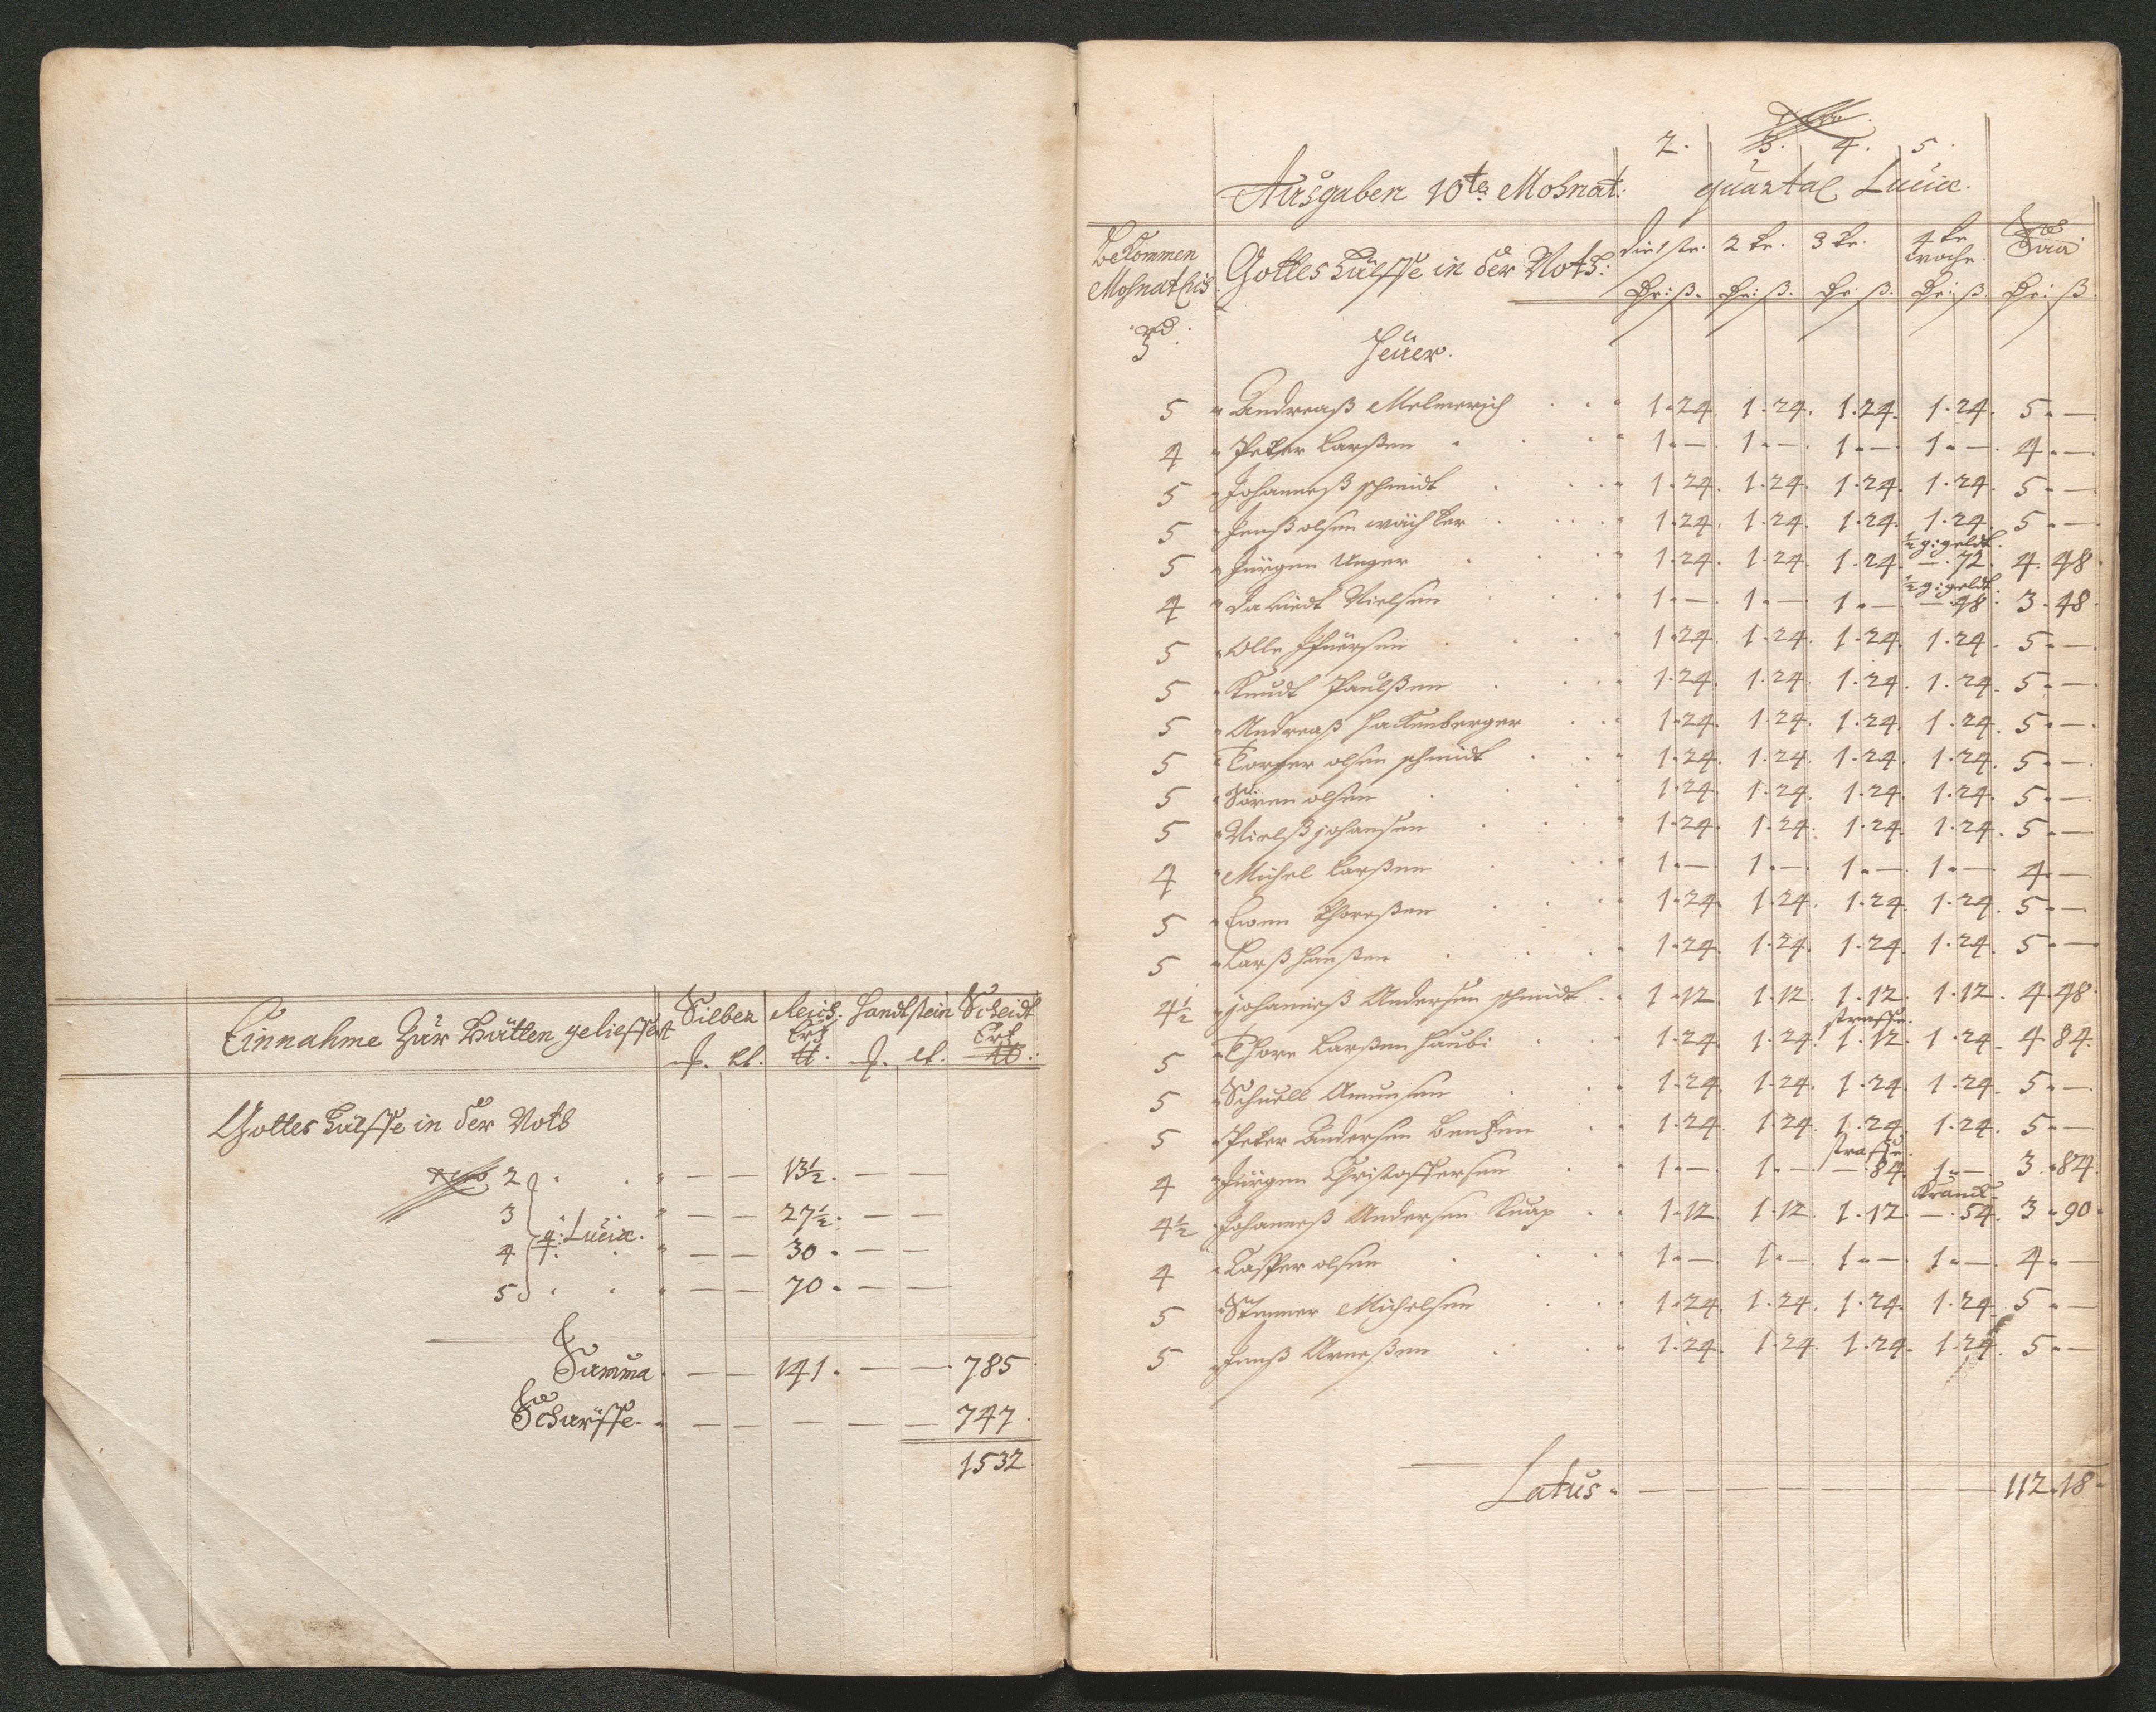 Einnahme Zur Hütten gelieffert
Silber Reich Ertz Handtstein Scheidt Ertz
Gottes Hülffe in der Noth
2 . . " — — 13½. — —
3 " — — 27½. — —
q: Luciæ.
4 . " — — 30. — —
5 . . " — — 70. — —
Summa. — — 141. — — 785
Scharffe. — — — — — 747.
1532.
2. 3. 4. 5.
Ausgaben 10te Mohnat: quartal Luciæ.
Bekommen Mohnathlich
Gottes Hülffe in der Noth:
die 1ste. 2te. 3te. 4te woche. Sũa
Rdr: ß. Rdr: ß. Rdr: ß. Rdr: ß. Rdr: ß.
Heüer.
5 " Andreaß Melmerich . . " 1.24. 1.24. 1.24. 1.24. 5. —
4 " Peter Larßen . . . " 1. —. 1. —. 1. —. 1. —. 4. —
5 " Johanneß Schmidt . . . " 1.24. 1.24. 1.24. 1.24. 5. —
5 " Jenß olsen wächter . . . " 1.24. 1.24. 1.24. 1.24. 5. —
½ g: geldt.
5 " Jürgen Unger . . . " 1.24. 1.24. 1.24. —. 72. 4. 48
½ g: geldt.
4 " Daviedt Nielsen . . . " 1. —. 1. —. 1. —. —. 48. 3. 48.
5 " Olle Ifuersen . . . " 1.24. 1.24. 1.24. 1.24. 5. —
5 " Knudt Paulßen . . . " 1.24. 1.24. 1.24. 1.24. 5. —
5 " Andreaß Hackenberger . . " 1.24. 1.24. 1.24. 1.24. 5. —
5 " Torger olsen Schmidt . . " 1.24. 1.24. 1.24. 1.24. 5. —
5 " Sören olsen . . . " 1.24. 1.24. 1.24. 1.24. 5. —
5 " Nielß johansen . . . " 1.24. 1.24. 1.24. 1.24. 5. —
4 " Michel Larßen . . . " 1. —. 1. —. 1. —. 1. —. 4. —
5 " Ewen Thorßen . . . " 1.24. 1.24. 1.24. 1.24. 5. —
5 " Larß Hanßen . . . " 1.24. 1.24. 1.24. 1.24. 5. —
4½ " johanneß Andersen Schmidt . . 1.12. 1.12. 1.12. 1.12. 4.48.
straffe.
5 " Thore Larßen Haubi . . . 1.24. 1.24. 1.12. 1.24. 4. 84.
5 " Schnell Amunsen . . " 1.24. 1.24. 1.24. 1.24. 5. —
5 " Peter Andersen Bentzen . . 1.24. 1.24. 1.24. 1.24. 5. —
straffe.
4 " Jürgen Christoffersen . . 1. —. 1. —. —. 84. 1. —. 3. 84.
Kranck.
4½ " Johanneß Andersen Knap . . 1.12. 1.12. 1.12. —. 54. 3. 90.
4 " Casper olsen . . . 1. —. 1. —. 1. —. 1. —. 4. —
5 " Stenner Michelsen . . " 1.24. 1.24. 1.24. 1.24. 5. —
5 " Jenß Arneßen . . " 1.24. 1.24. 1.24. 1.24. 5. —
Latus. — — — — — — 112.18.